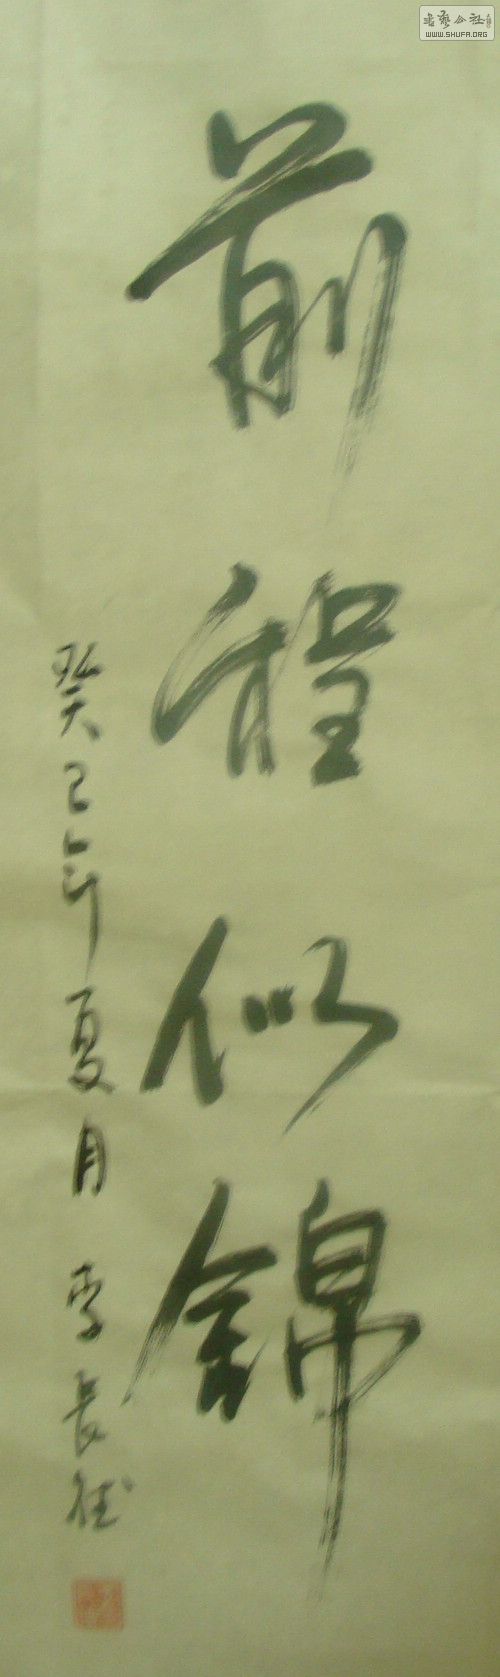 書藝公社
WWW.SHUFA.ORG
前程似錦
癸巳年夏月 李長征